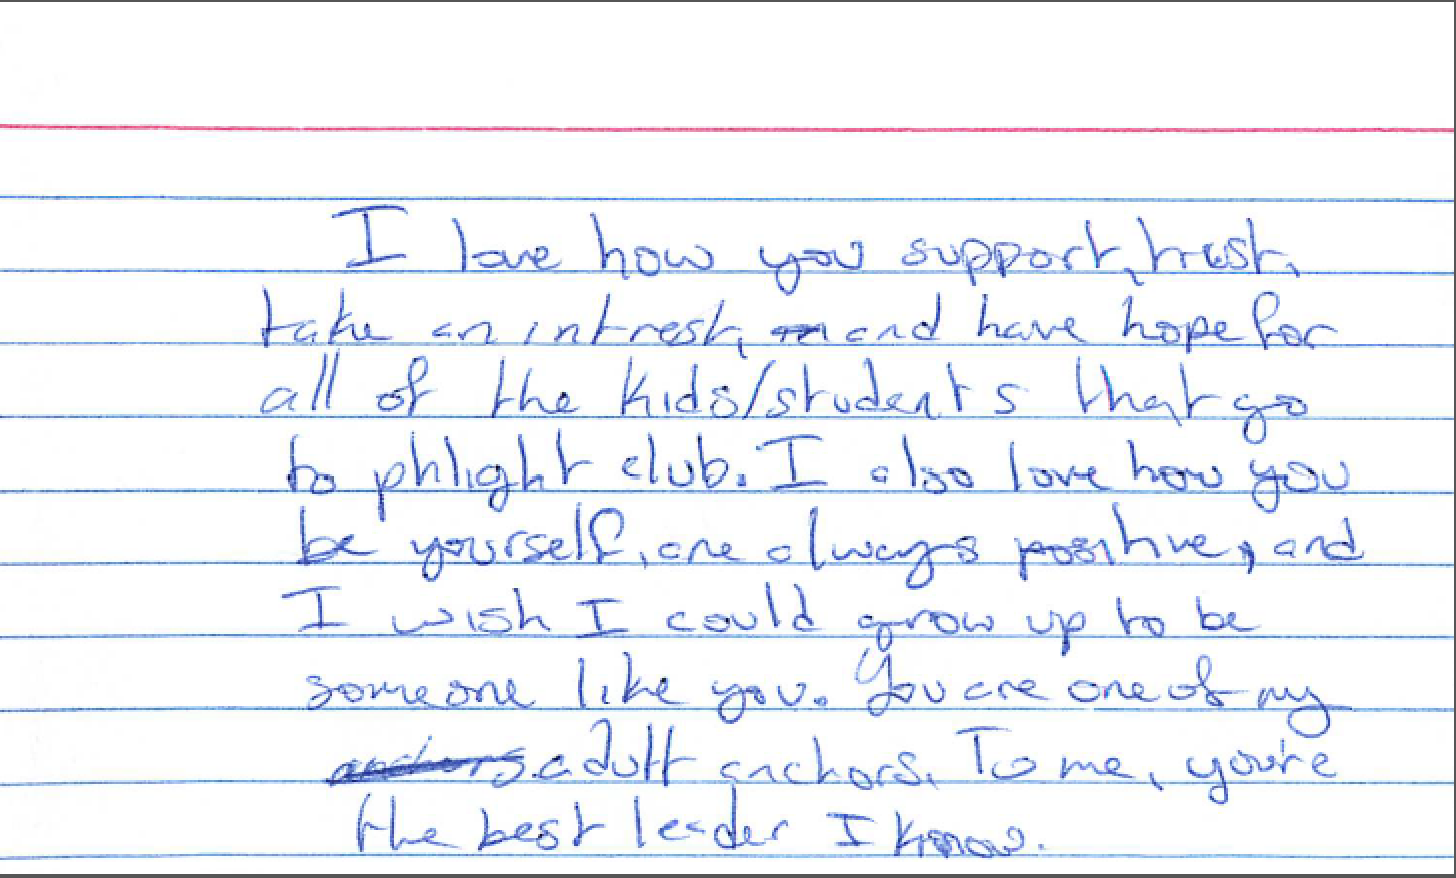 I love how you support, trust,
take an intrest, and have hope for
all of the kids/students that go
to phlight club. I also love how you
be yourself, are always positive, and
I wish I could grow up to be
someone like you. You are one of my
anchors adult anchors. To me, you're
the best leader I know.